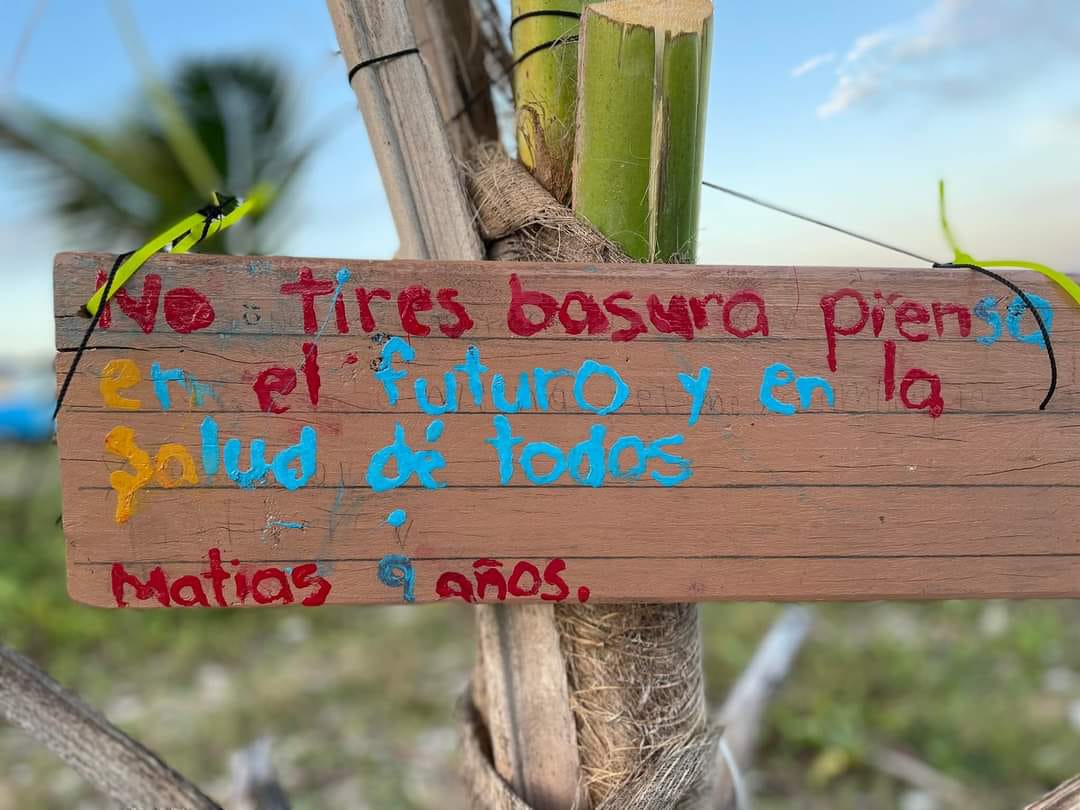 No tires basura piensa
en el futuro y en la
salud dé todos
Matias 9 años.